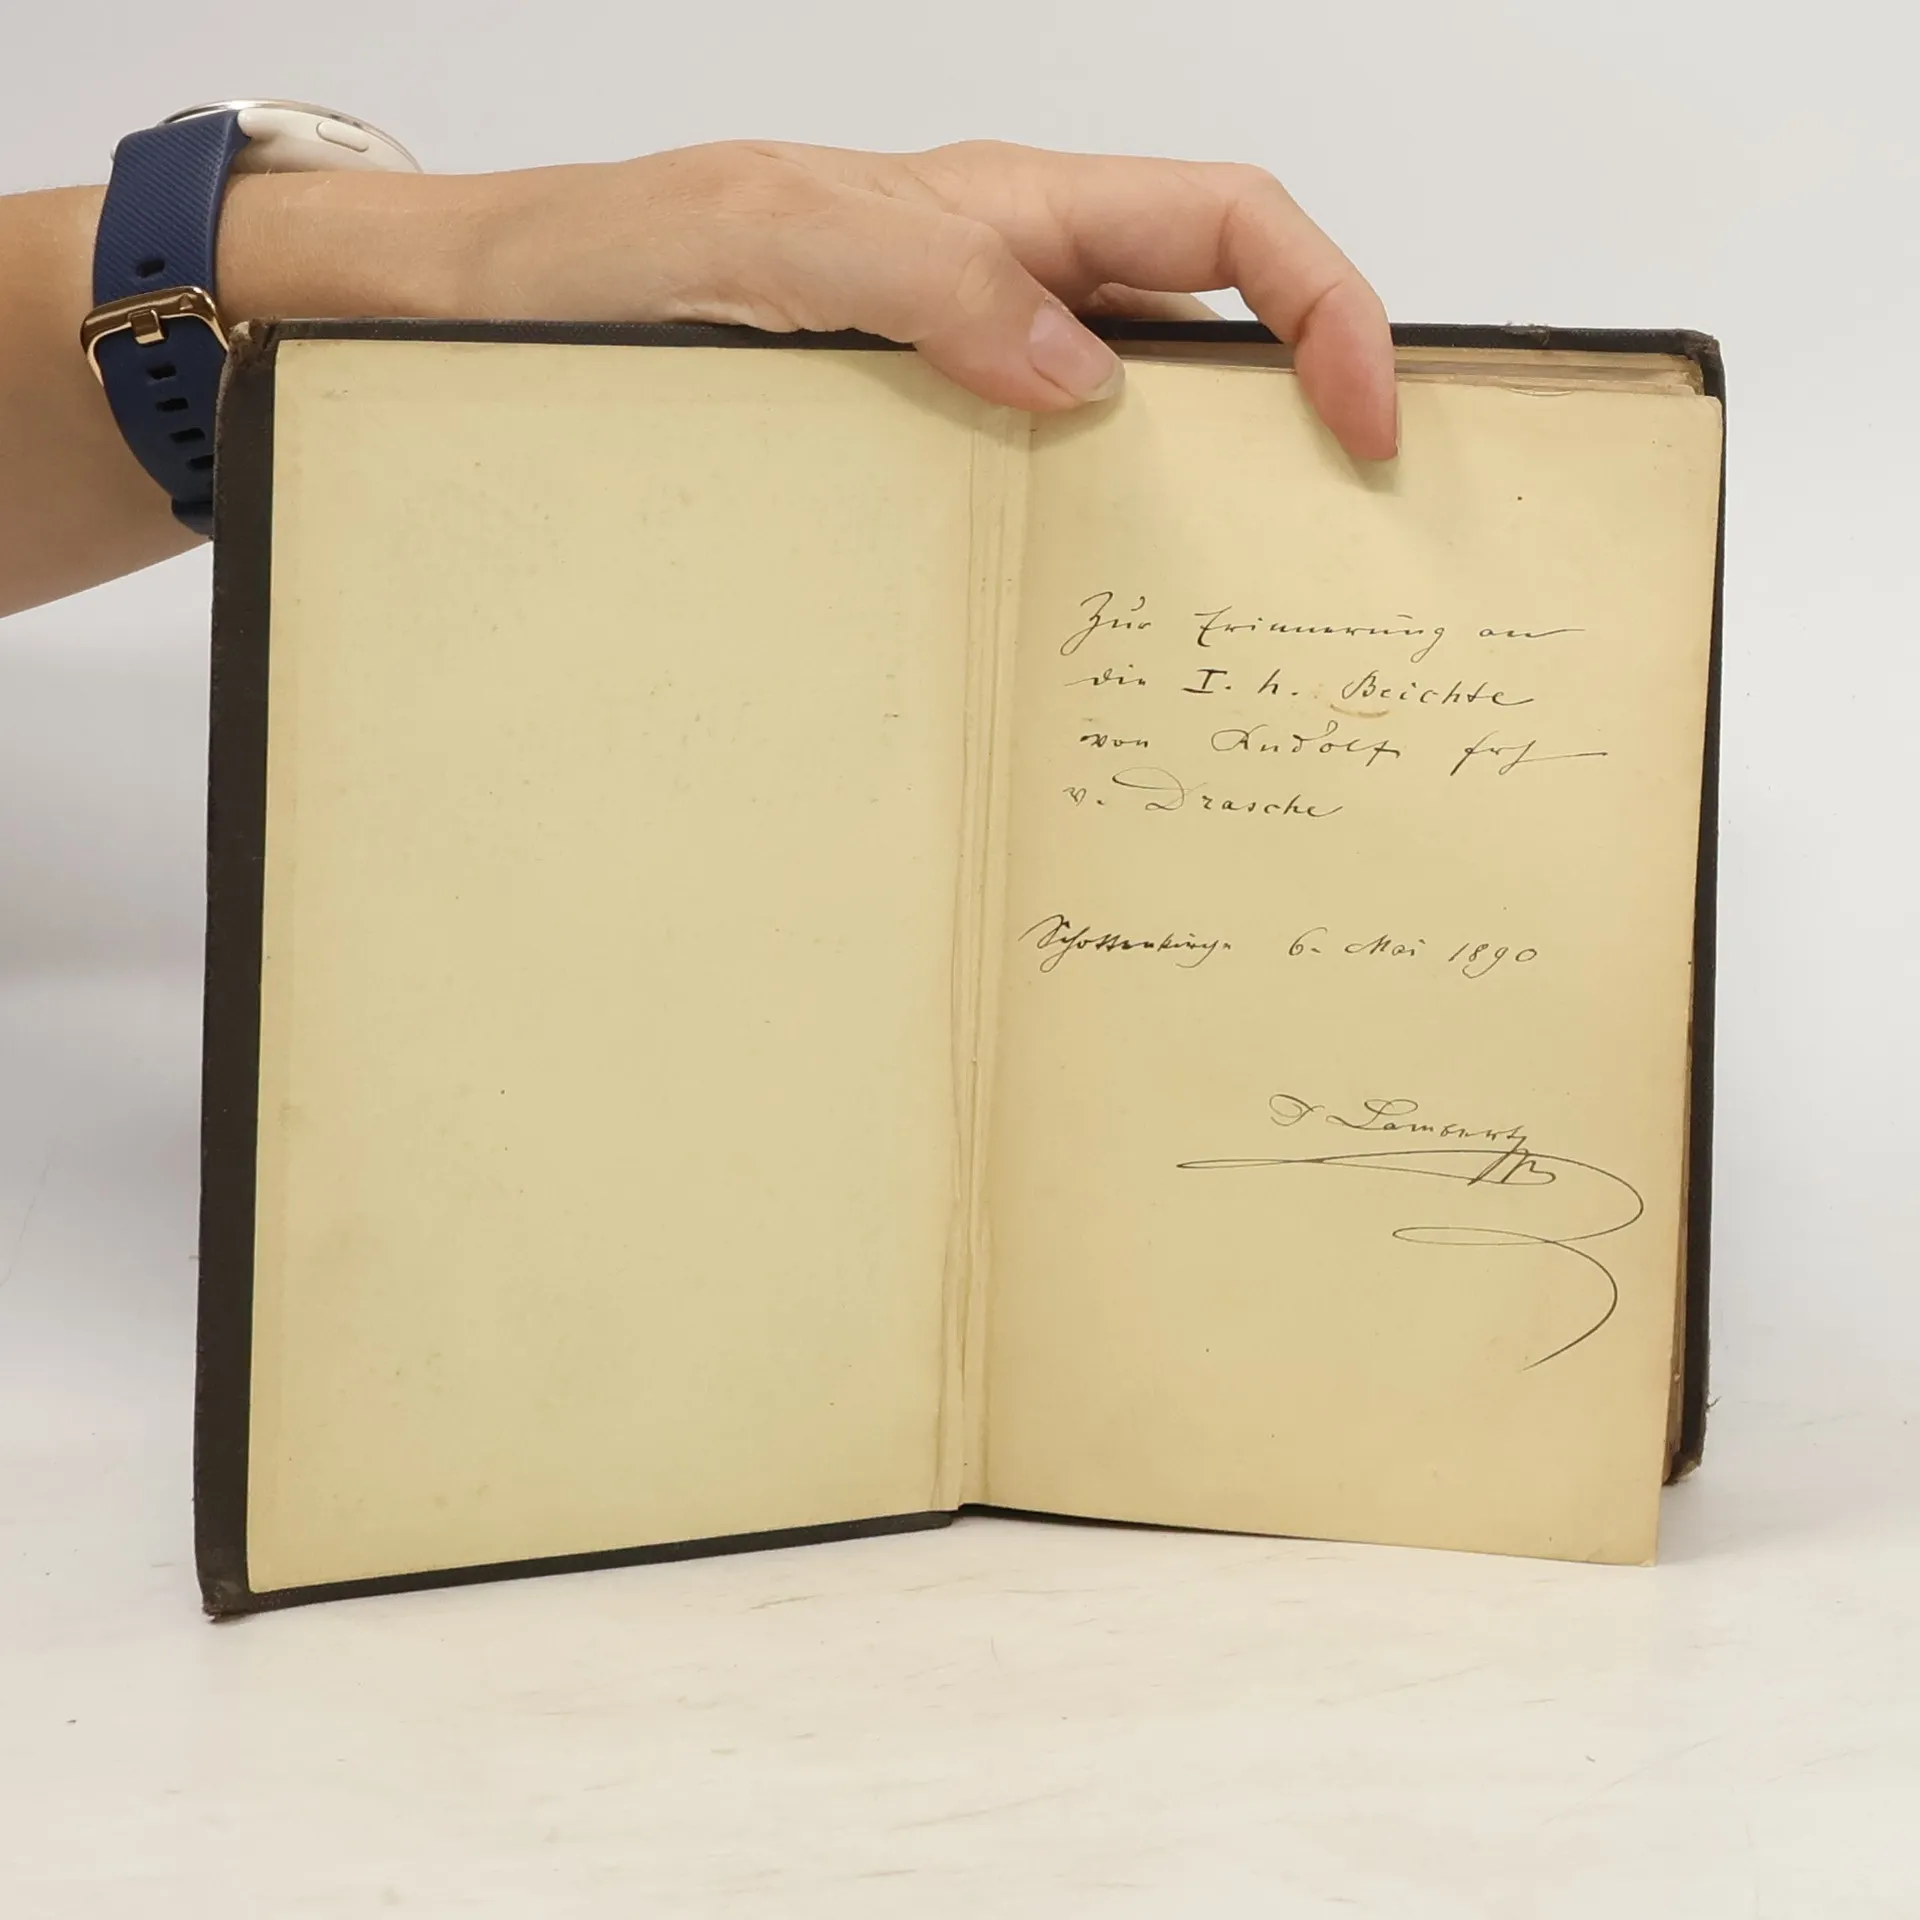 Zur Erinnerung an
die I. h. Beichte
von Rudolf Frh
v. Drasche
Schottenkirche 6. Mai 1890
Lambertz